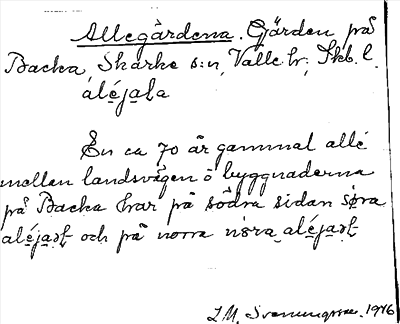 Allegärdena. Gjärden på
Backa, Skärke s:n, Valle hr; Skb. l.
aléjaLa
En ca 70 år gammal allé
mellan landsvägen o byggnaderna
på Backa har på södra sidan
och på norra
L.M. Svenungsson. 1946